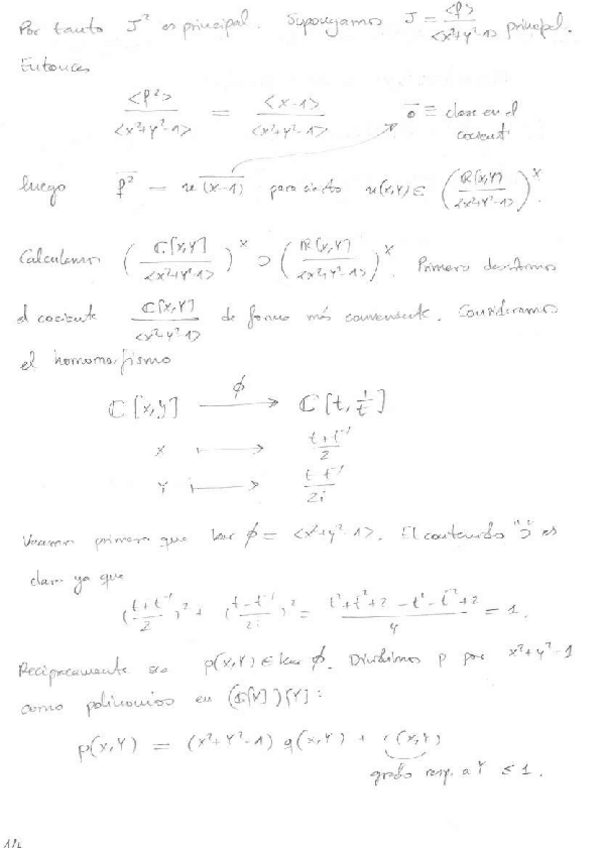 Por tanto J² es principal. Supongamos J = <f>/<x²+y²-1> principal.
Entonces
<f²>/<x²+y²-1> = <x-1>/<x²+y²-1>    ō ≡ clase en el cociente
luego f̄² = u (x-1) para cierto u(x,y) ∈ (ℝ[x,y]/<x²+y²-1>)^x.
Calculemos (ℂ[x,y]/<x²+y²-1>)^x ⊃ (ℝ[x,y]/<x²+y²-1>)^x. Primero
el cociente ℂ[x,y]/<x²+y²-1> de forma más conveniente. Consideramos
el homomorfismo
ℂ[x,y] —ϕ→ ℂ[t, 1/t]
x ↦ (t+t⁻¹)/2
y ↦ (t-t⁻¹)/2i
Veamos primero que ker ϕ = <x²+y²-1>. El contenido "⊃" es
claro ya que
((t+t⁻¹)/2)² + ((t-t⁻¹)/2i)² = (t²+t⁻²+2-t²-t⁻²+2)/4 = 1.
Recíprocamente sea p(x,y) ∈ ker ϕ. Dividimos p por x²+y²-1
como polinomios en (ℂ[x])[y]:
p(x,y) = (x²+y²-1) q(x,y) + r(x,y)
grado resp. a y ≤ 1.